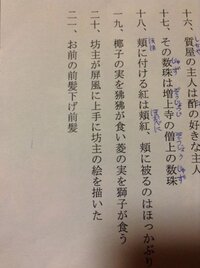 十六、質屋の主人は酢の好きな主人
十七、その数珠は増上寺の僧上の数珠
十八、頬に付ける紅は頬紅、頬に被るのはほっかぶり
一九、椰子の実を狒狒が食い菱の実を獅子が食う
二十、坊主が屏風に上手に坊主の絵を描いた
二一、お前の前髪下げ前髪